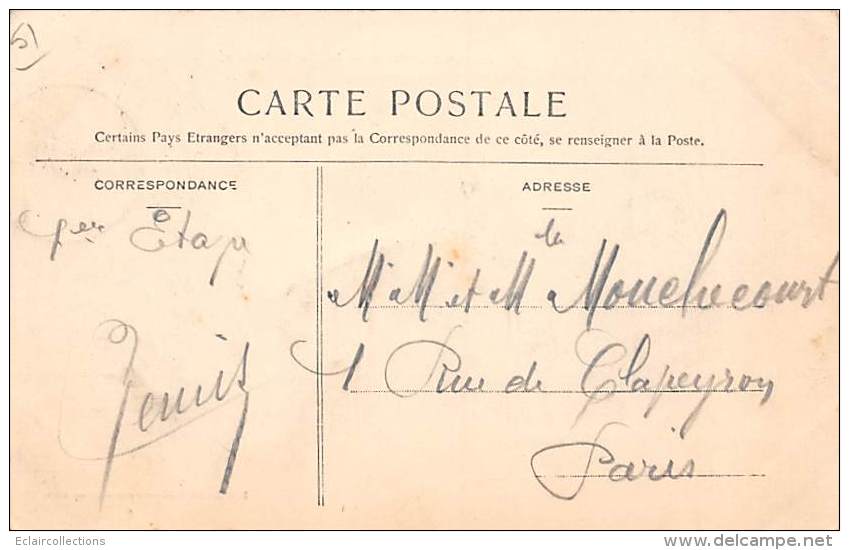 5)
CARTE POSTALE
Certains Pays Etrangers n'acceptant pas la Correspondance de ce côté, se renseigner à la Poste.
CORRESPONDANCE
1er Etap
ADRESSE
M M et M Mouchecourt
1 Rue de Clapeyron
Paris
Eclaircollections
delcampe.net